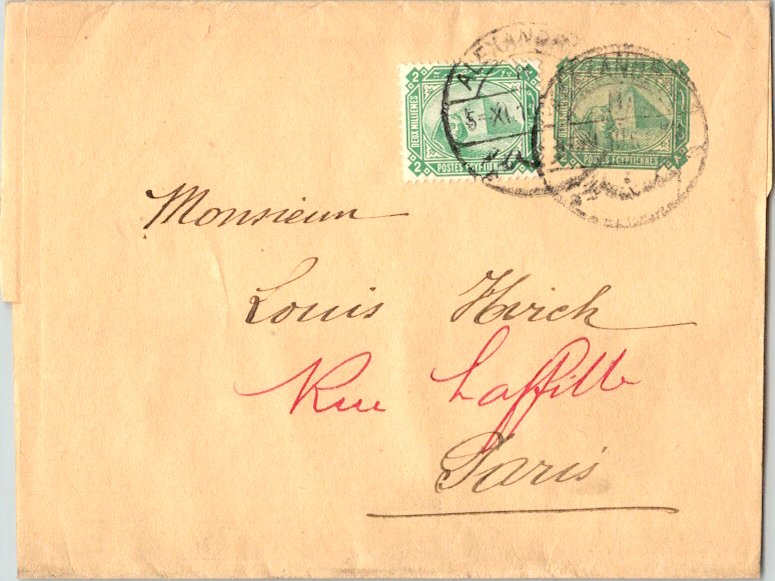 2 2
DEUX MILLIEMES
POSTES EGYPTIENNES
2 2
ALEXANDR
5-XI.1
ALEXAND
POSTES EGYPTIENNES
Monsieur
Louis Hirch
Rue Laffitte
Paris